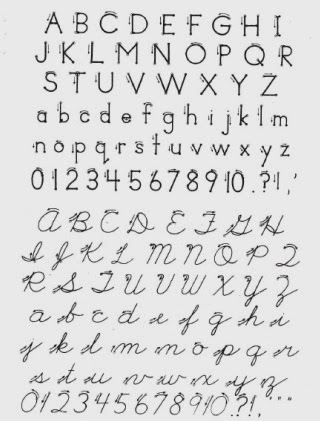 A B C D E F G H I
J K L M N O P Q R
S T U V W X Y Z
a b c d e f g h i j k l m
n o p q r s t u v w x y z
0 1 2 3 4 5 6 7 8 9 10 . ? ! , '
A B C D E F G H
I J K L M N O P Q
R S T U V W X Y Z
a b c d e f g h i
j k l m n o p q r
s t u v w x y z
0 1 2 3 4 5 6 7 8 9 10 . ? ! , " "